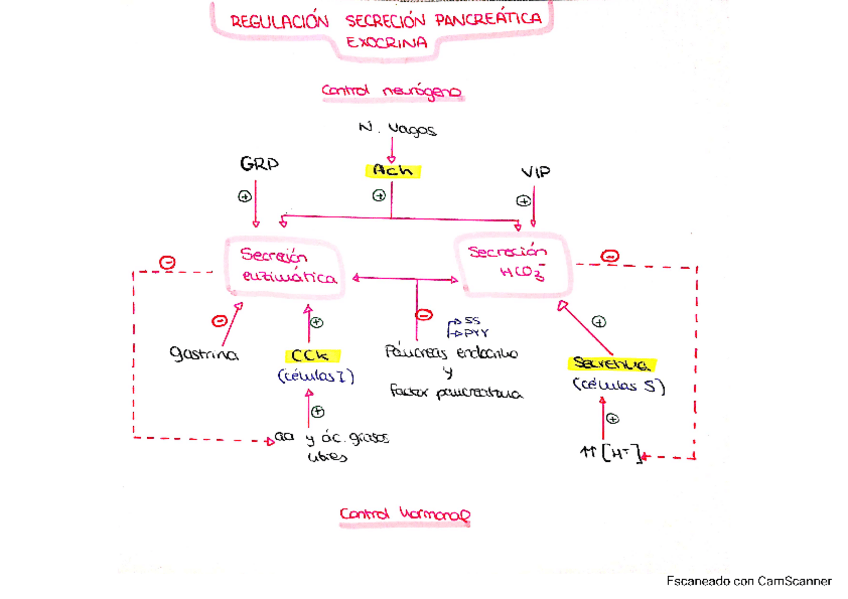 REGULACIÓN SECRECIÓN PANCREÁTICA
EXOCRINA
Control neurógeno
N. Vagos
GRP
Ach
VIP
+
+
+
Secreción
enzimática
Secreción
HCO3-
-
-
-
-
gastrina
+
CCK
(células I)
SS
PYY
Páncreas endocrino
y
Factor pancreatina
+
Secretina
(células S)
+
+
aa y ác. grasos
libres
↑↑ [H+]
Control hormonal
Escaneado con CamScanner